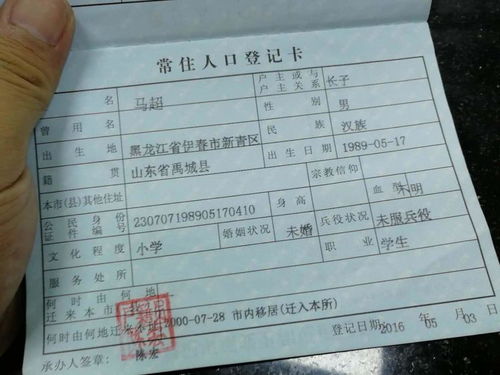 常住人口登记卡
名 马超 户主或与户主关系 长子
曾用名 性别 男
出生地 黑龙江省伊春市新青区 民族 汉族
籍贯 山东省禹城县 出生日期 1989-05-17
本市(县)其他住址 宗教信仰
公民身份证件编号 230707198905170410 身高 血型 不明
文化程度 小学 婚姻状况 未婚 兵役状况 未服兵役
服务处所 职业 学生
何时由何地迁来本市
何时由何地迁来本 2000-07-28 市内移居(迁入本所)
登记日期2016年05月03日
承办人签章: 陈宏